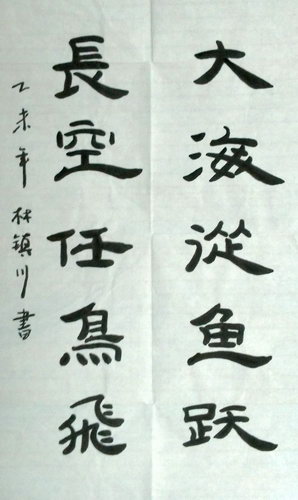 大海從魚跃
長空任鳥飛
乙未年林鎮川書